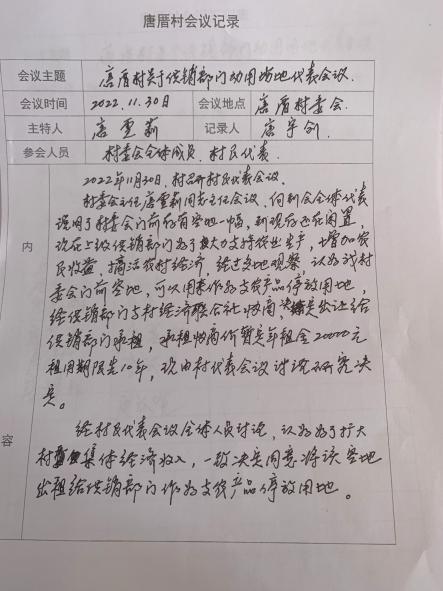 唐厝村会议记录
会议主题 唐厝村关于供销部门动用场地代表会议.
会议时间 2022.11.30日 会议地点 唐厝村委会.
主持人 唐重莉 记录人 唐宇剑
参会人员 村委会全体成员、村民代表.
2022年11月30日,村召开村民代表会议.
村委会主任唐重莉同志主任会议、向到会全体代表
说明了村委会门前存有空地一幅,到现在还在闲置,
现在上级供销部门为了扩大力支持农业生产,增加农
民收益,搞活农村经济,经过多地观察,认为我村
委会门前空地,可以用来作为支农产品停放用地,
经供销部门与村经济联合社协商,决定出让给
供销部门承租,承租协商价暂定年租金20000元
租用期限是10年,现由村代表会议讨论研究决
定。
内
容
经村民代表会议全体人员讨论,认为为了扩大
村集体经济收入,一致决定同意将该空地
出租给供销部门作为支农产品停放用地。